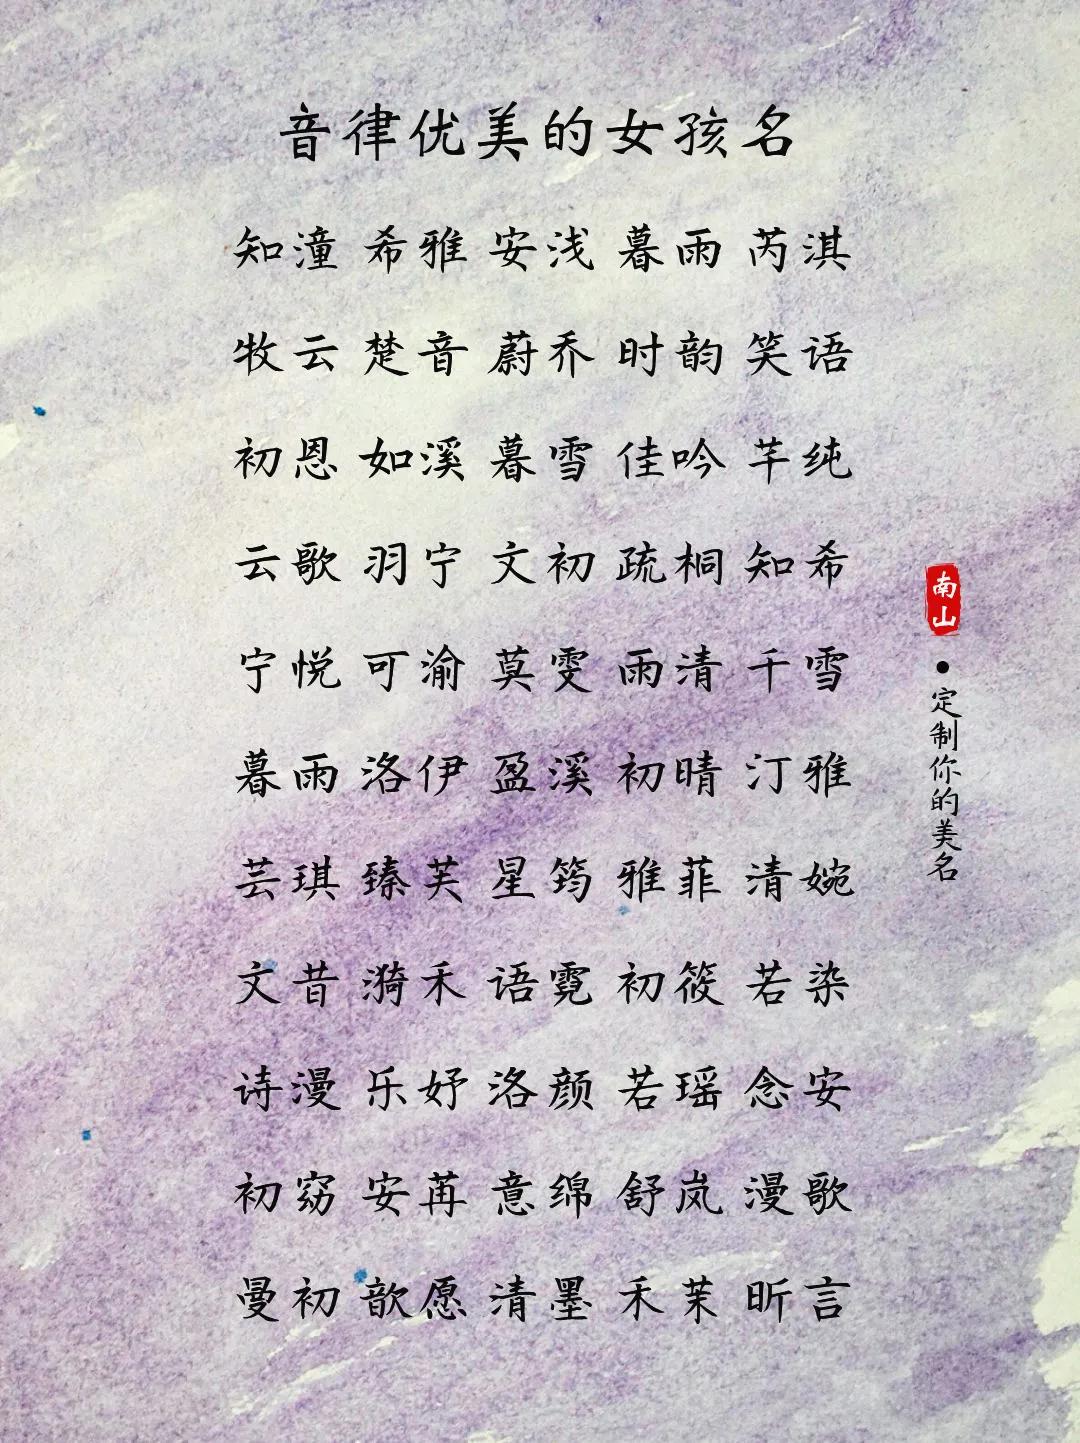 音律优美的女孩名
知潼 希雅 安浅 暮雨 芮淇
牧云 楚音 蔚乔 时韵 笑语
初恩 如溪 暮雪 佳吟 芊纯
云歌 羽宁 文初 疏桐 知希
宁悦 可渝 莫雯 雨清 千雪
暮雨 洛伊 盈溪 初晴 汀雅
芸琪 臻芙 星筠 雅菲 清婉
文昔 漪禾 语霓 初筱 若染
诗漫 乐妤 洛颜 若瑶 念安
初窈 安苒 意绵 舒岚 漫歌
曼初 歆愿 清墨 禾茉 昕言
南山
•定制你的美名